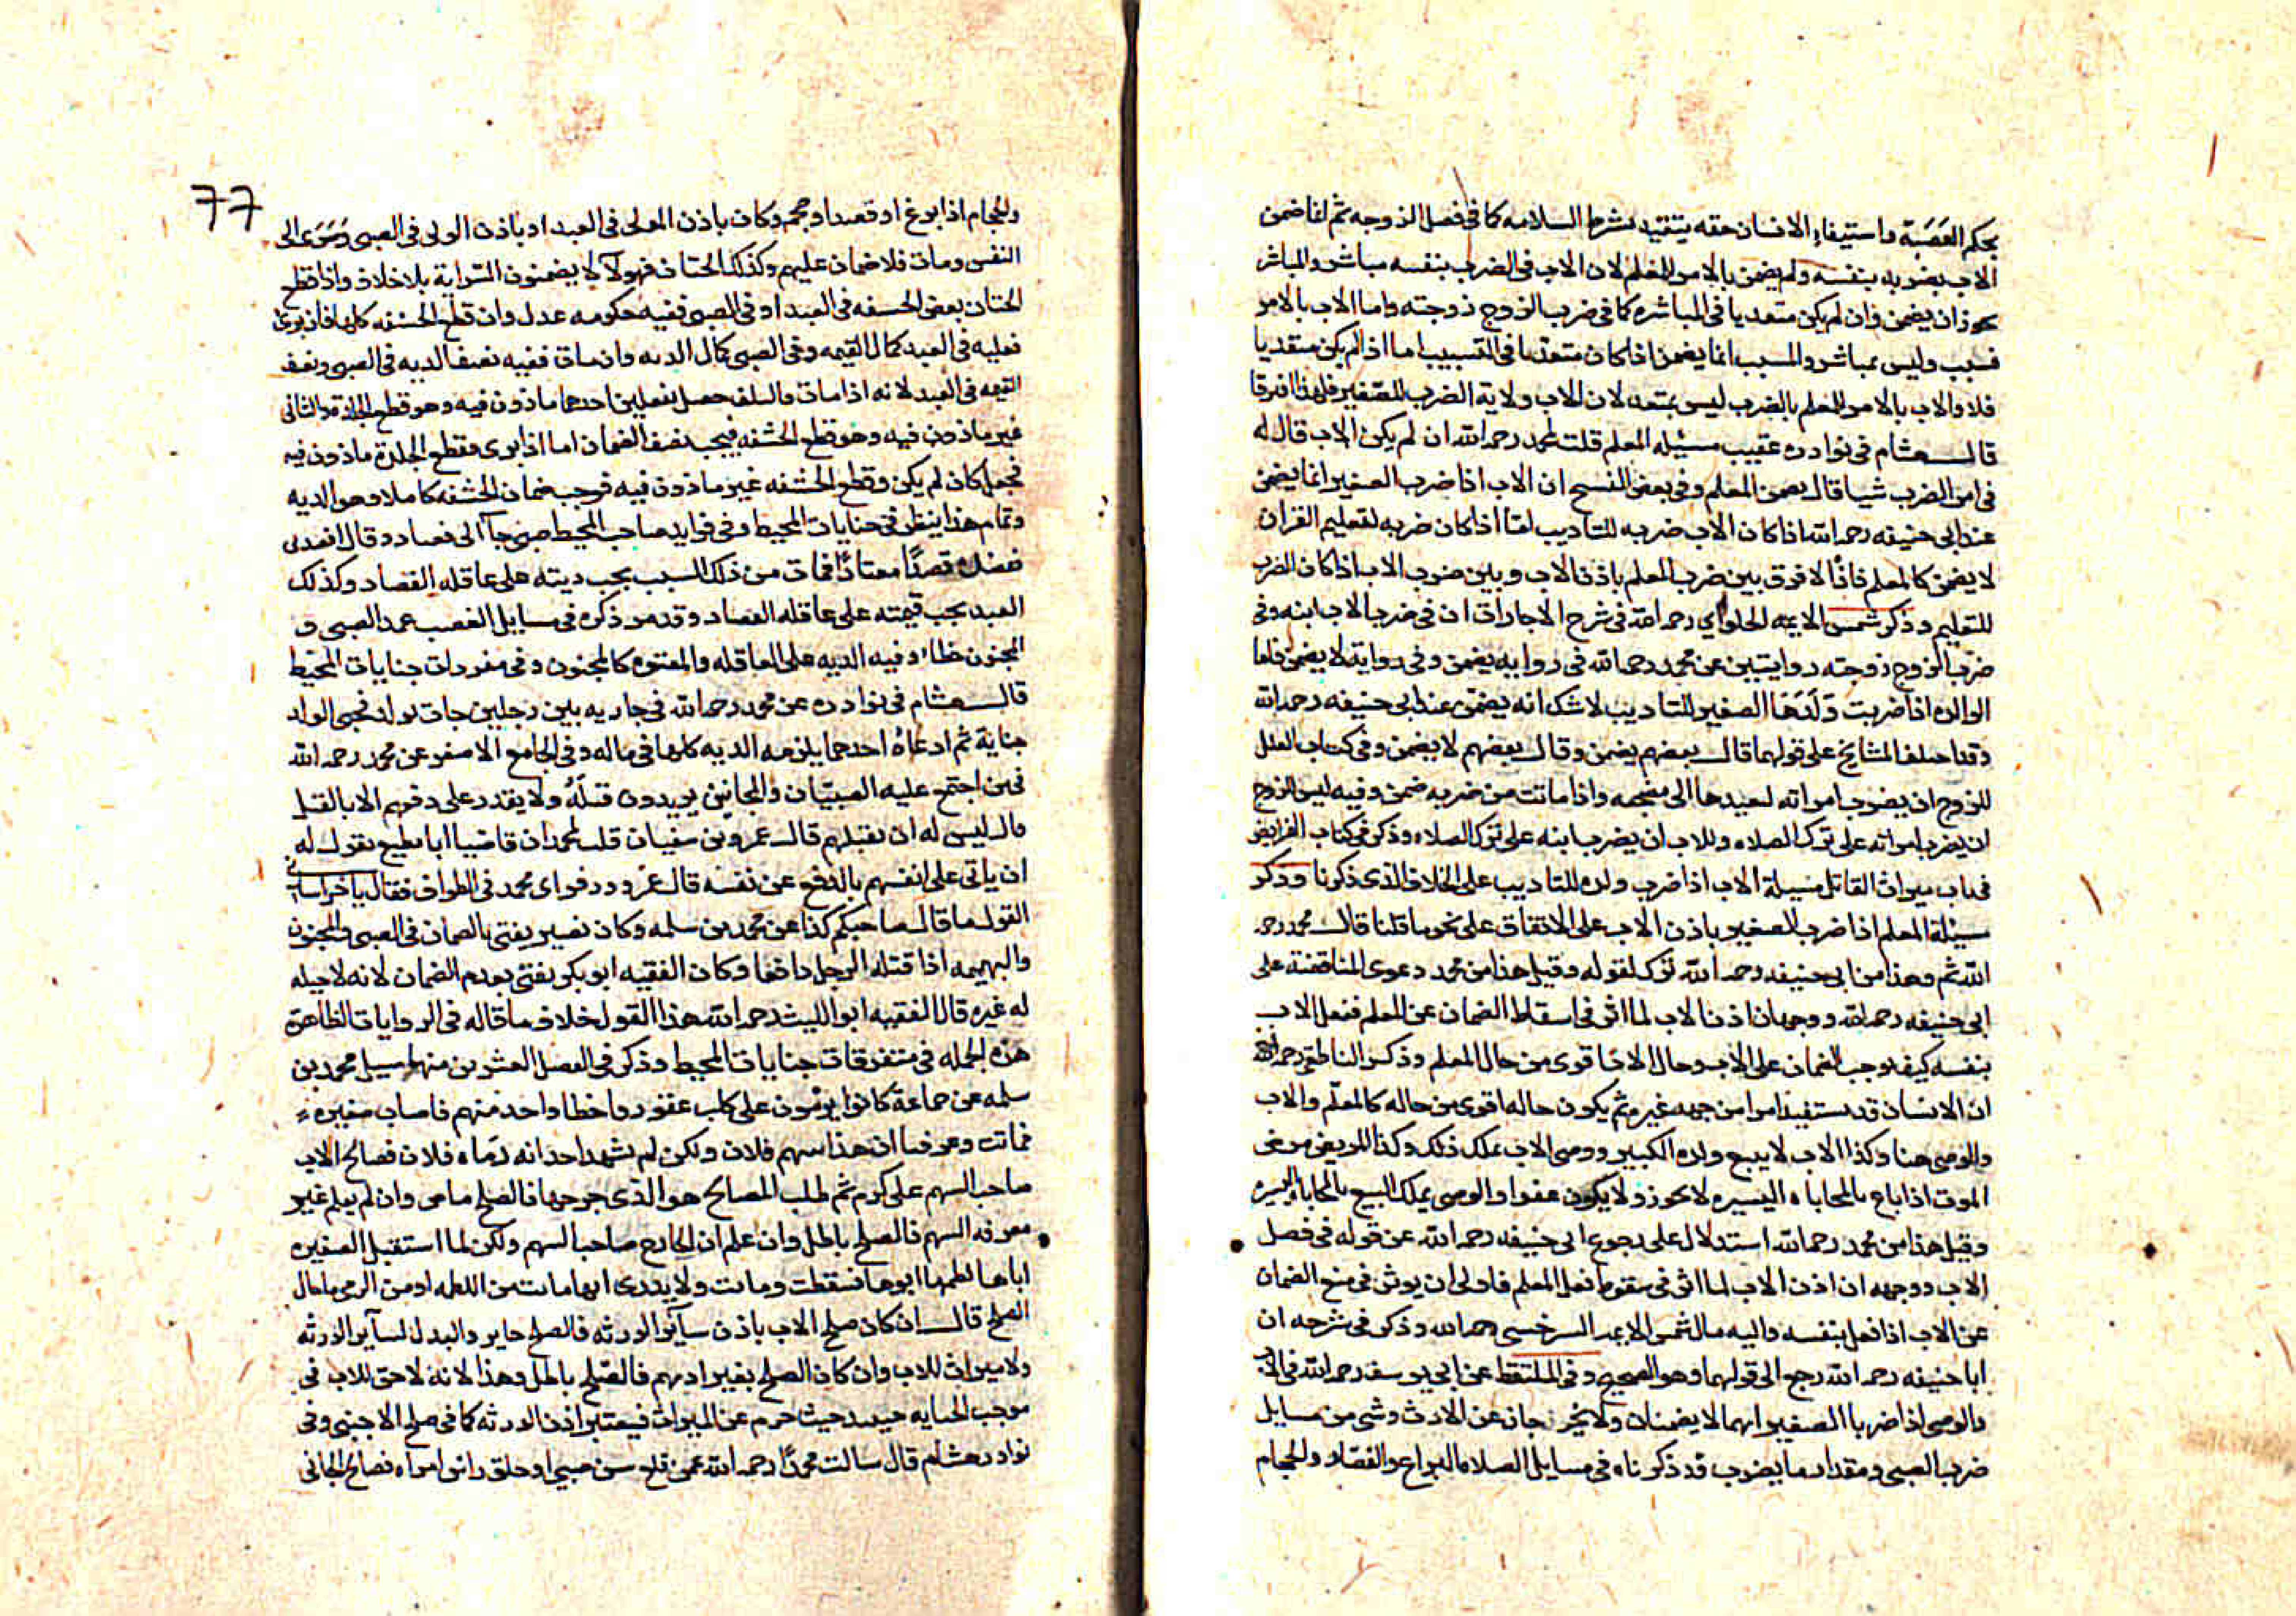 بحكم العصبة واستيفاء الانسان حقه يتقيد بشرط السلامه كما فى فصل الزوجه ثم انما ضمن
الاب بضربه بنفسه ولم يضمن بالامر المعلم لان الاب فى الضرب بنفسه مباشر والمباشر
يجوز ان يضمن وان لم يكن متعديا فى المباشره كما فى ضرب الزوج زوجته واما الاب بالامر
مسبب وليس بمباشر والمسبب انما يضمن اذا كان متعديا فى التسبيب اما اذا لم يكن متعديا
فلا والاب بالامر للمعلم بالضرب ليس بمتعد لان للاب ولاية الضرب للصغير فلهذا افترقا
قال هشام فى نوادره عقيب مسئله المعلم قلت لمحمد رحمه الله ان لم يكن الاب قال له
فى امر الضرب شيا قال يضمن المعلم وفى بعض النسخ ان الاب اذا ضرب الصغير انما يضمن
عند ابى حنيفه رحمه الله اذا كان الاب ضربه للتاديب امّا اذا كان ضربه لتعليم القران
لا يضمن كالمعلم فاذًا لا فرق بين ضرب المعلم باذن الاب وبين ضرب الاب اذا كان الضرب
للتعليم وذكر شمس الايمه الحلواي رحمه الله فى شرح الاجارات ان فى ضرب الاب ابنه وفى
ضرب الزوج زوجته روايتين عن محمد رحمه الله فى روايه يضمن وفى رواية لا يضمن فاما
الوالده اذا ضربت وَلَدَهَا الصغير للتاديب لا شك انه يضمن عند ابى حنيفه رحمه الله
وقد اختلف المشايخ على قولهما قال بعضهم يضمن وقال بعضهم لا يضمن وفى كتاب العلل
للزوج ان يضرب امراته ليعيدها الى مضجعه واذا ماتت من ضربه ضمن وفيه ليس للزوج
ان يضرب امراته على ترك الصلاه وللاب ان يضرب ابنه على ترك الصلاه وذكر فى كتاب الفرايض
فى باب ميراث القاتل مسيلة الاب اذا ضرب ولده للتاديب على الخلاف الذى ذكرنا وذكر
مسيلة المعلم اذا ضرب الصغير باذن الاب على الاتفاق على نحو ما قلنا قال محمد رحمه
الله ثم وهذا من ابى حنيفه رحمه الله ترك لقوله وقيل هذا من محمد دعوى المناقضة على
ابى حنيفه رحمه الله ووجهه ان اذن الاب لما اثر فى اسقاط الضمان عن المعلم ففعل الاب
بنفسه كيف يوجب الضمان على الاب وحال الاب اقوى من حال المعلم وذكر الناطفى رحمه الله
ان الانسان قد يستفيد امرا من جهه غيره ثم يكون حاله اقوى من حاله كالمعلّم والاب
والوصى هنا وكذا الاب لا يبيع ولده الكبير ووصى الاب يملك ذلك وكذا المريض مرض
الموت اذا باع بالمحاباه اليسيره لا يجوز ولا يكون عفوا والوصى يملك البيع بالمحاباه اليسيره
وقيل هذا من محمد رحمه الله استدلال على رجوع ابى حنيفه رحمه الله عن قوله فى فصل
الاب ووجهه ان اذن الاب لما اثر فى سقوط فعل المعلم فاولى ان يوثر فى منع الضمان
عن الاب اذا فعل بنفسه واليه مال شمس الايمه السرخسى رحمه الله وذكر فى شرحه ان
ابا حنيفه رحمه الله رجع الى قولهما وهو الصحيح وفى الملتقط عن ابى يوسف رحمه الله فى الاب
والوصى اذا ضربا الصغير انهما لا يضمنان ولا يخرجان عن الارث وشى من مسايل
ضرب الصبى ومقدار ما يضرب قد ذكرناه فى مسايل الصلاه البزاغ والفصّاد والحجام
77
والحجام اذا بزغ او فصد او حجم وكان باذن المولى فى العبد او باذن الولى فى الصبى وسَرَى الى
النفس ومات فلا ضمان عليهم وكذلك الختان فهولآ لا يضمنون السّراية بلا خلاف واذا قطع
الختان بعض الحشفه فى العبد او فى الصبى ففيه حكومه عدل وان قطع الحشفه كلها فان برئ
فعليه فى العبد كمال القيمه وفى الصبى كمال الديه وان مات ففيه نصف الديه فى الصبى ونصف
القيمه فى العبد لانه اذا مات فالتلف حصل بفعلين احدهما ماذون فيه وهو قطع الجلدة والثانى
غير ماذون فيه وهو قطع الحشفه فيجب نصف الضمان اما اذا برى فقطع الجلدة ماذون فيه
فجعل كان لم يكن وقطع الحشفه غير ماذون فيه فوجب ضمان الحشفه كاملا وهو الديه
وتمام هذا ينظر فى جنايات المحيط وفى فوايد صاحب المحيط صبى جآ الى فصاد وقال افصدنى
ففصده فصدًا معتادًا فمات من ذلك السبب يجب ديته على عاقله الفصاد وكذلك
العبد يجب قيمته على عاقله الفصاد وقد مر ذكره فى مسايل الغصب عمد الصبى و
المجنون خطاء وفيه الديه على العاقله والمعتوه كالمجنون وفى مفردات جنايات المحيط
قال هشام فى نوادره عن محمد رحمه الله فى جاريه بين رجلين جات بولد فجنى الولد
جناية ثم ادعاهُ احدهما يلزمه الديه كلها فى ماله وفى الجامع الاصغر عن محمد رحمه الله
فيمن اجتمع عليه الصبيّان والمجانين يريدون قتلَهُ ولا يقدر على دفعهم الا بالقتل
قال ليس له ان يقتلهم قال عمرو بن سفيان قلت لمحمد ان قاضينا ابا مطيع يقول له
ان ياتى على انفسهم بالدفع عن نفسه قال عمرو ورفر اى محمد فى الطواف فقال يا خراسانى
القول ما قال صاحبكم كذا عن محمد بن سلمه وكان نصير يفتى بالضمان فى الصبى والمجنون
والبهيمه اذا قتله الرجل دافعا وكان الفقيه ابو بكر يفتى بعدم الضمان لانه لا حيله
له غيره قال الفقيه ابو الليث رحمه الله هذا القول خلاف ما قاله فى الروايات الظاهرة
هذه الجمله فى متفرقات جنايات المحيط وذكر فى الفصل العشرين منها سيل محمد بن
سلمه عن جماعة كانوا يرمُون على كلب عقور واخطا واحد منهم فاصاب صغيره
فماتت وعرفنا ان هذا سهم فلان ولكن لم يشهد احد انه رَماه فلان فصالح الاب
صاحب السهم على كرم ثم طلب المصالح هو الذى جرحها فالصلح ماض وان لم يعلم غير
معرفه السهم فالصلح باطل وان علم ان الجارح صاحب السهم ولكن لما استقبل الصغيره
اباها لطمها ابوها فسقطت وماتت ولا يدرى انها ماتت من اللطمه او من الرمى ما حال
الصلح قال ان كان صلح الاب باذن سآئر الورثه فالصلح جايز والبدل لسآئر الورثه
ولا ميراث للاب وان كان الصلح بغير اذنهم فالصّلح باطل وهذا لانه لا حق للاب فى
موجب الجنايه حينيد حيث حرم عن الميراث فيعتبر اذن الورثه كما فى صلح الاجنبى وفى
نوادر هشام قال سالت محمدًا رحمه الله عمن قلع سن صبى او حلق راس امراه فصالح الجانى